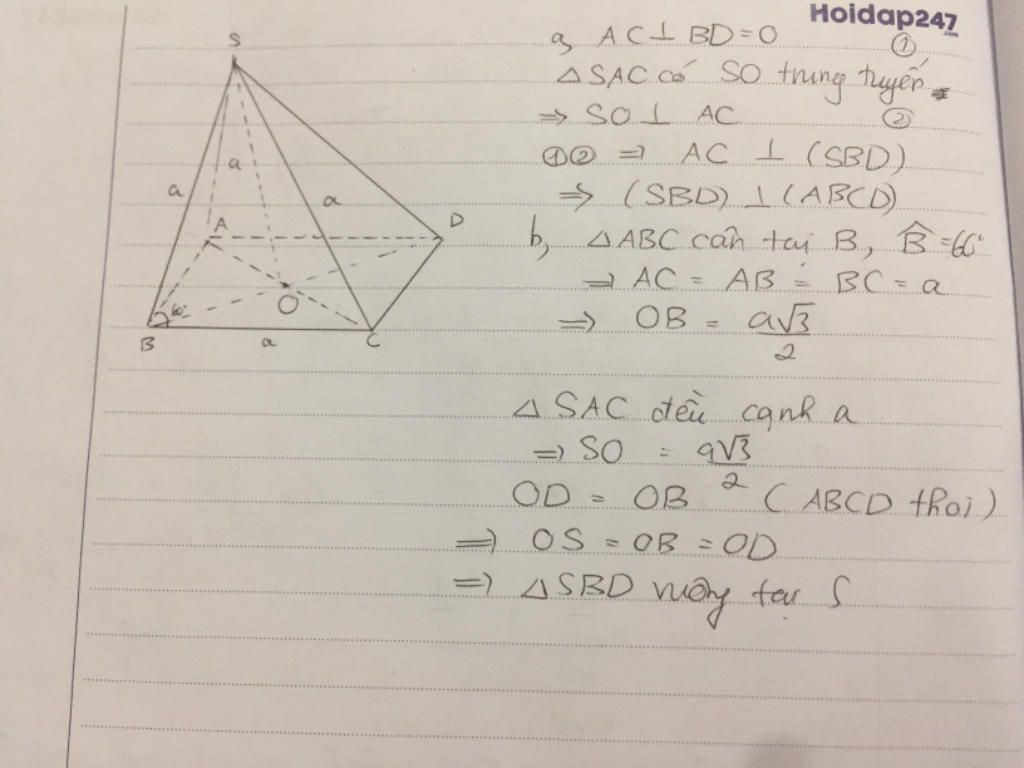 Hoidap247
.com
a, AC ⊥ BD = O ①
△ SAC có SO trung tuyến
⇒ SO ⊥ AC ②
①② ⇒ AC ⊥ (SBD)
⇒ (SBD) ⊥ (ABCD)
b, △ ABC cân tại B, B̂ = 60°
⇒ AC = AB = BC = a
⇒ OB = a√3/2
△ SAC đều cạnh a
⇒ SO = a√3/2
OD = OB (ABCD thoi)
⇒ OS = OB = OD
⇒ △ SBD vuông tại S
S
a
a
a
A
D
60°
O
B
a
C